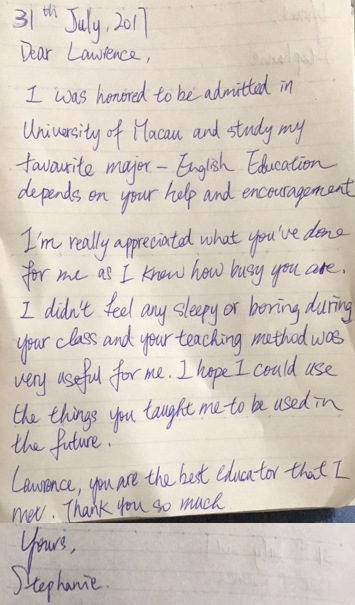 31th July, 2017
Dear Lawrence,
I was honored to be admitted in
University of Macau and study my
favourite major - English Education
depends on your help and encouragement
I'm really appreciated what you've done
for me as I know how busy you are.
I didn't feel any sleepy or boring during
your class and your teaching method was
very useful for me. I hope I could use
the things you taught me to be used in
the future.
Lawrence, you are the best educator that I
met. Thank you so much
Yours,
Stephanie.